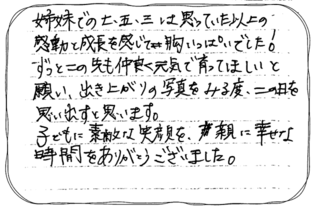 姉妹での七五三は思っていた以上の
感動と成長を感じて胸いっぱいでした!
ずっとこの先も仲良く元気で育ってほしいと
願い、出き上がりの写真をみる度、この日を
思い出すと思います。
子どもに素敵な笑顔を、親に幸せな
時間をありがとうございました。